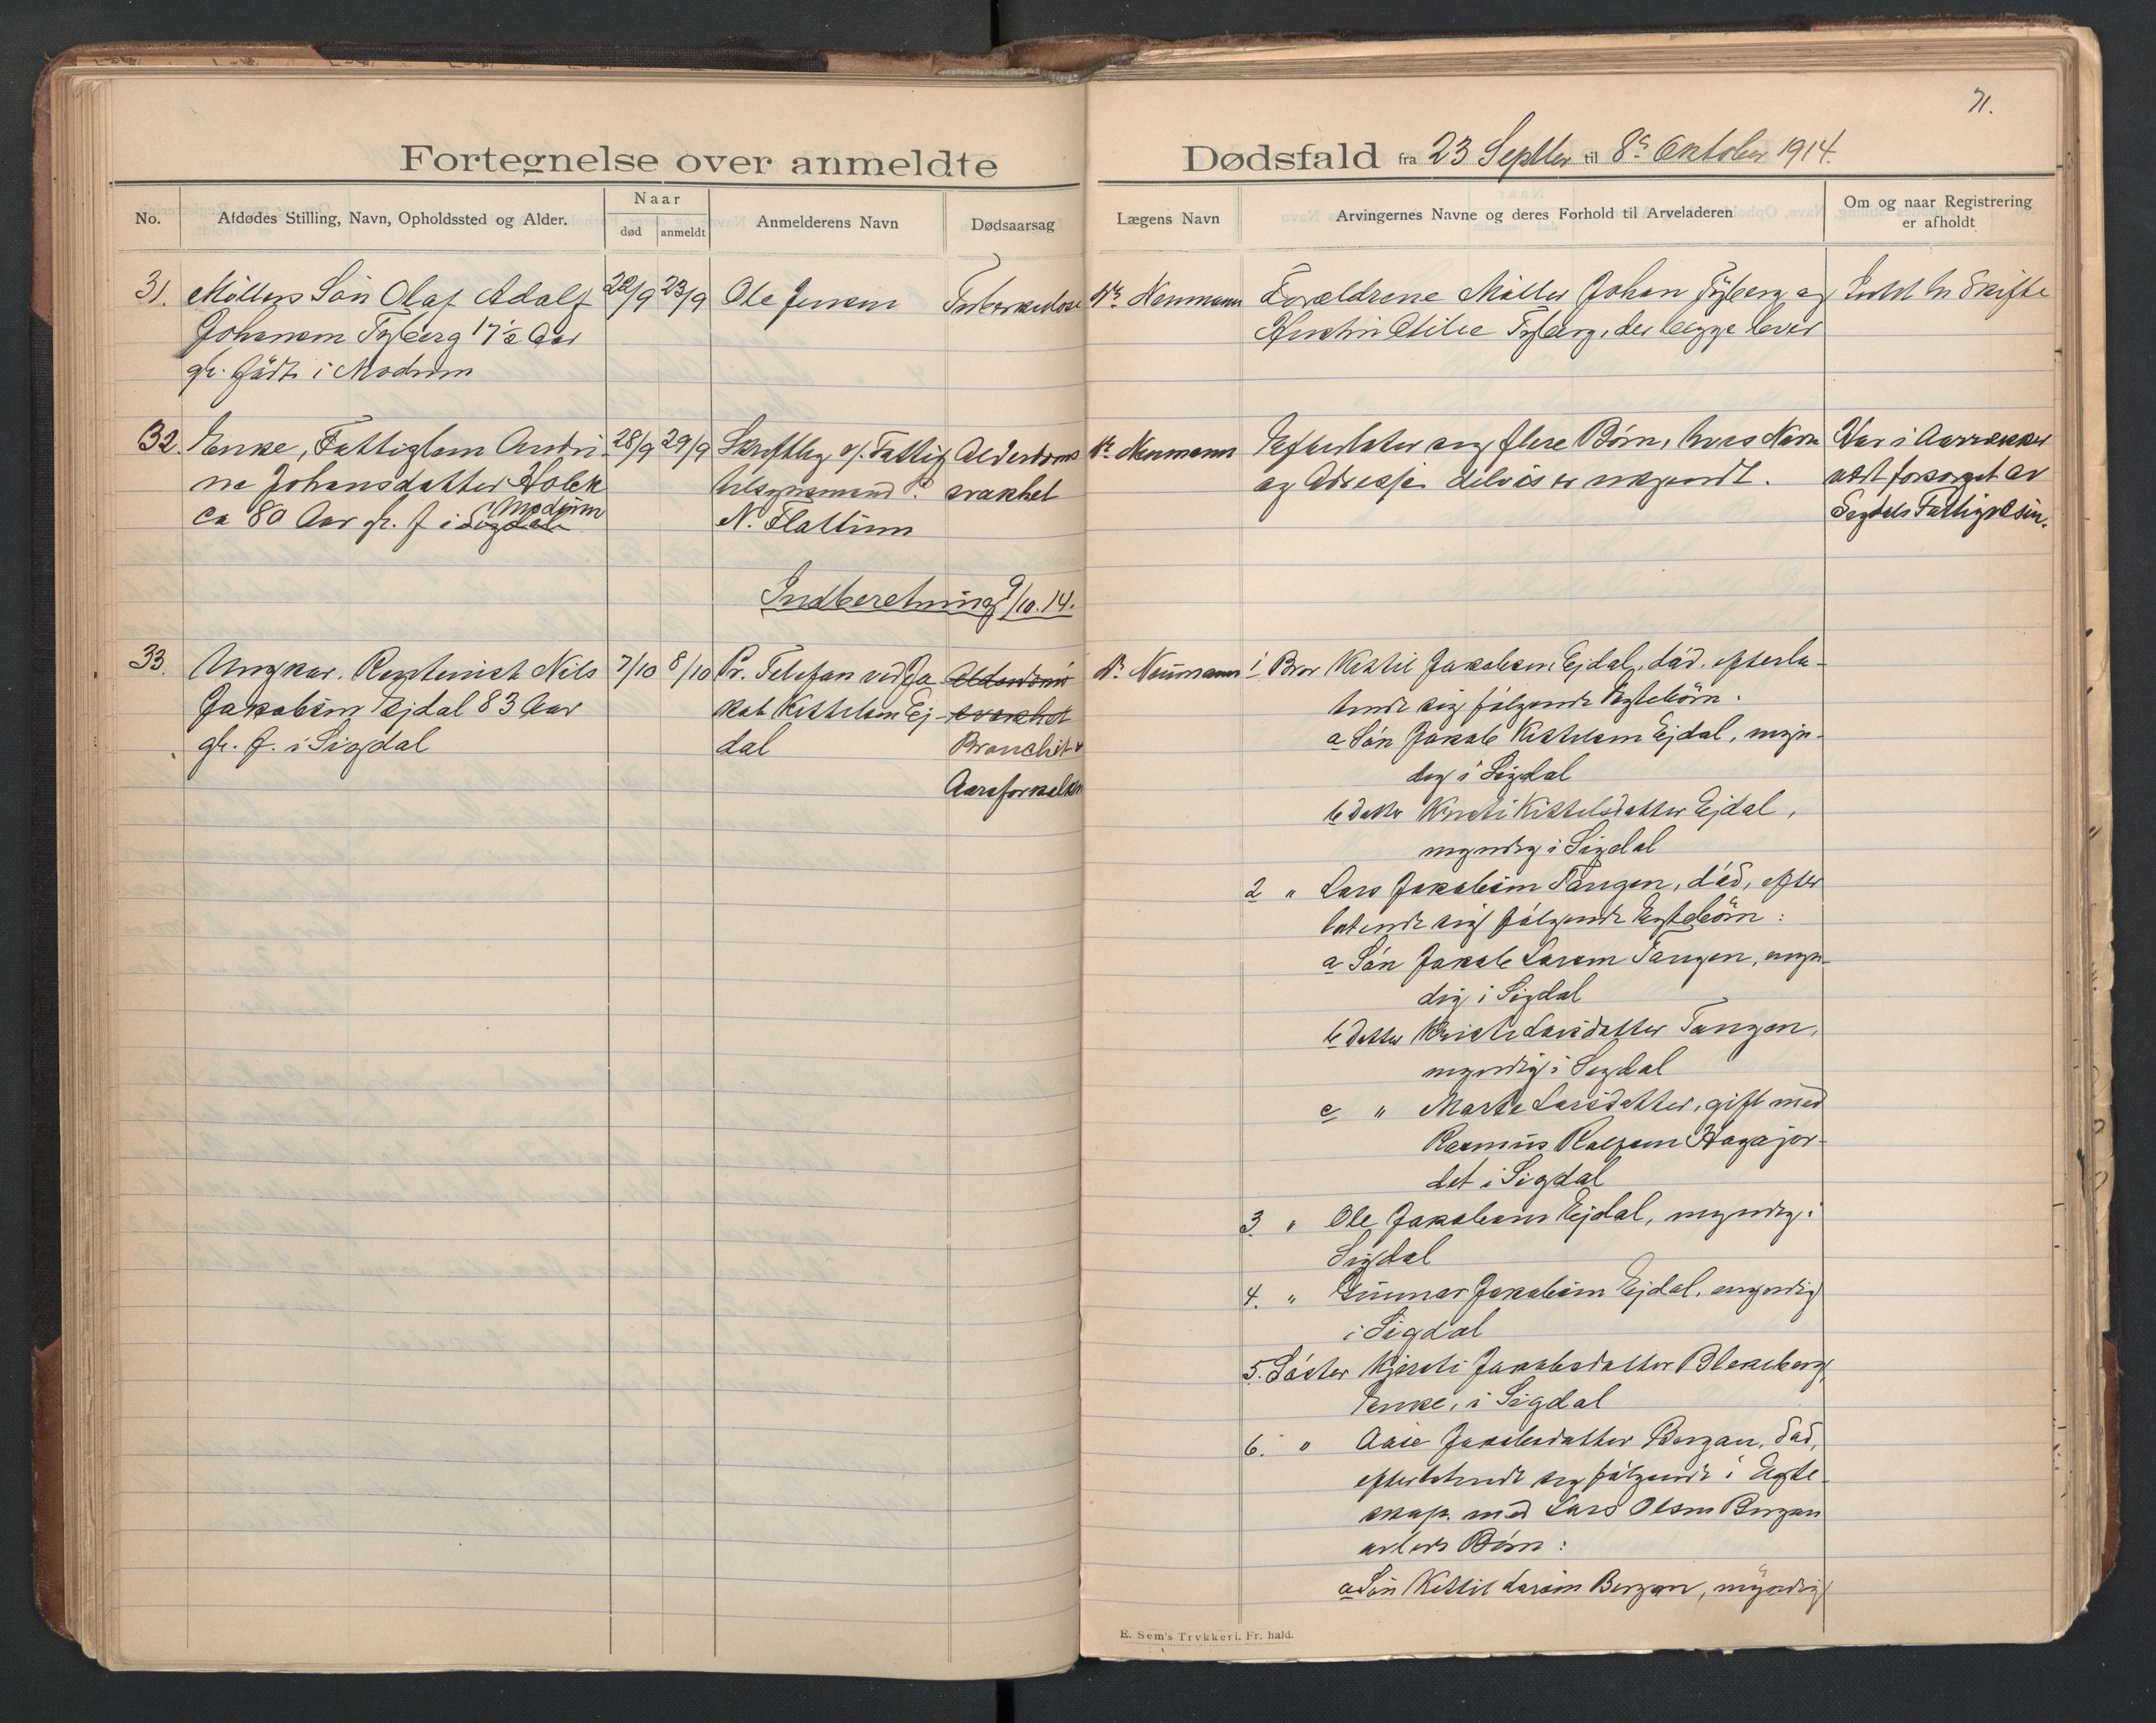 71.
Fortegnelse over anmeldte
Dødsfald fra 23 Septber til 8de Oktober 1914.
No.
Afdødes Stilling, Navn, Opholdssted og Alder.
Naar
død
anmeldt
Anmelderens Navn
Dødsaarsag
Lægens Navn
Arvingernes Navne og deres Forhold til Arveladeren
Om og naar Registrering
er afholdt
31.
Møllers Søn Olaf Adolf
Johansen Fyberg 17½ Aar
gl. født i Modum
22/9
23/9
Ole Jensen
Tuberkulose
Dr. Neumann
Forældrene Møller Johan Fyberg og
Otilie Fyberg, der begge lever
Skifte
32.
Enke, Fattiglem Andri-
ne Johansdatter Holek
ca 80 Aar gl. f. i Sigdal
Modum
28/9
29/9
Skriftlig v/. Fattig
tilsynsmand
N. Flattum
Alderdoms
svakhet
Dr. Neumann
Efterlater seg flere Børn, hvis Navn
og Adresse delvis er ukjendt.
Var i Aarrekker
vært forsørget av
Sigdals Fattigvæsen.
Indberetning 9/10.14.
33.
Ungkar, Rentenist Nils
Jakobsen Ejdal 83 Aar
gl. f. i Sigdal
7/10
8/10
Pr. Telefon ved Ja-
kob Kittelsen Ej-
dal
Alderdoms
svakhet
Bronchit
Aareforkalkn
Dr. Neumann
1 Bror Kittil Jakobsen Ejdal, død, efterla-
tende sig følgende Egtebørn:
a Søn Jakob Kittilsen Ejdal, myn-
dig i Sigdal
b Datter Kersti Kittelsdatter Ejdal,
myndig i Sigdal
2 " Lars Jakobsen Tangen, død, efter
latende sig følgende Egtebørn:
a Søn Jakob Larsen Tangen, myn-
dig i Sigdal
b Datter Larsdatter Tangen,
myndig i Sigdal
c " Marte Larsdatter, gift med
Rasmus Hagajor-
det i Sigdal
3 " Ole Jakobsen Ejdal, myndig i
Sigdal
4. " Gunnar Jakobsen Ejdal, myndig
i Sigdal
5. Søster Kjersti Jakobsdatter Blekeberg,
Enke, i Sigdal
6. " Jakobsdatter Bergan, død,
efterlatende sig følgende i Egte-
skap med Lars Olsen Bergan
avlede Børn:
a Søn Kittil Larsen Bergan, myndig
E. Sem's Trykkeri. Fr. hald.